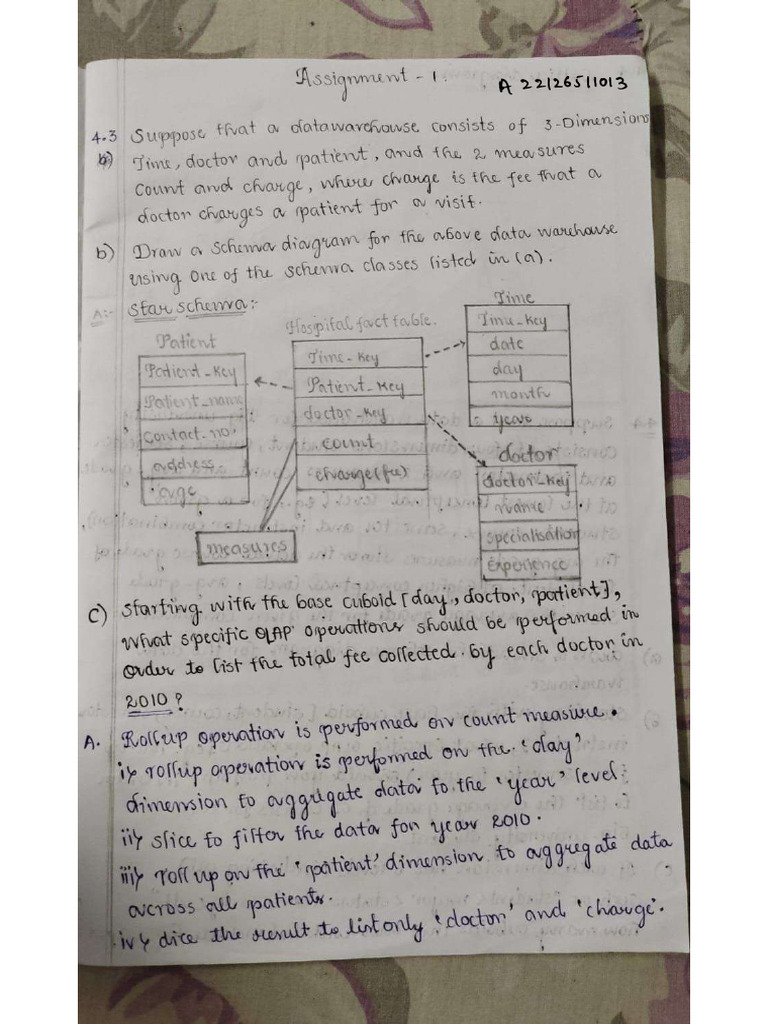 Assignment - 1.
A 22126511013
4.3 Suppose that a datawarehouse consists of 3-Dimensions
Time, doctor and patient, and the 2 measures
count and charge, where charge is the fee that a
doctor charges a patient for a visit.
b) Draw a schema diagram for the above data warehouse
using one of the schema classes listed in (a).
A:- Star schema:-
Patient
Patient_key
Patient_name
Contact_no.
address
age
Hospital fact table.
Time_key
Patient_key
doctor_key
count
charge(fee)
measures
Time
Time_key
date
day
month
year
doctor
doctor_key
name
specialisation
experience
C) Starting with the base cuboid [day, doctor, patient],
what specific OLAP operations should be performed in
order to list the total fee collected by each doctor in
2010?
A. Rollup operation is performed on count measure.
i) rollup operation is performed on the 'day'
dimension to aggregate data to the 'year' level.
ii) slice to filter the data for year 2010.
iii) roll up on the 'patient' dimension to aggregate data
across all patients.
iv) dice the result to list only 'doctor' and 'charge'.